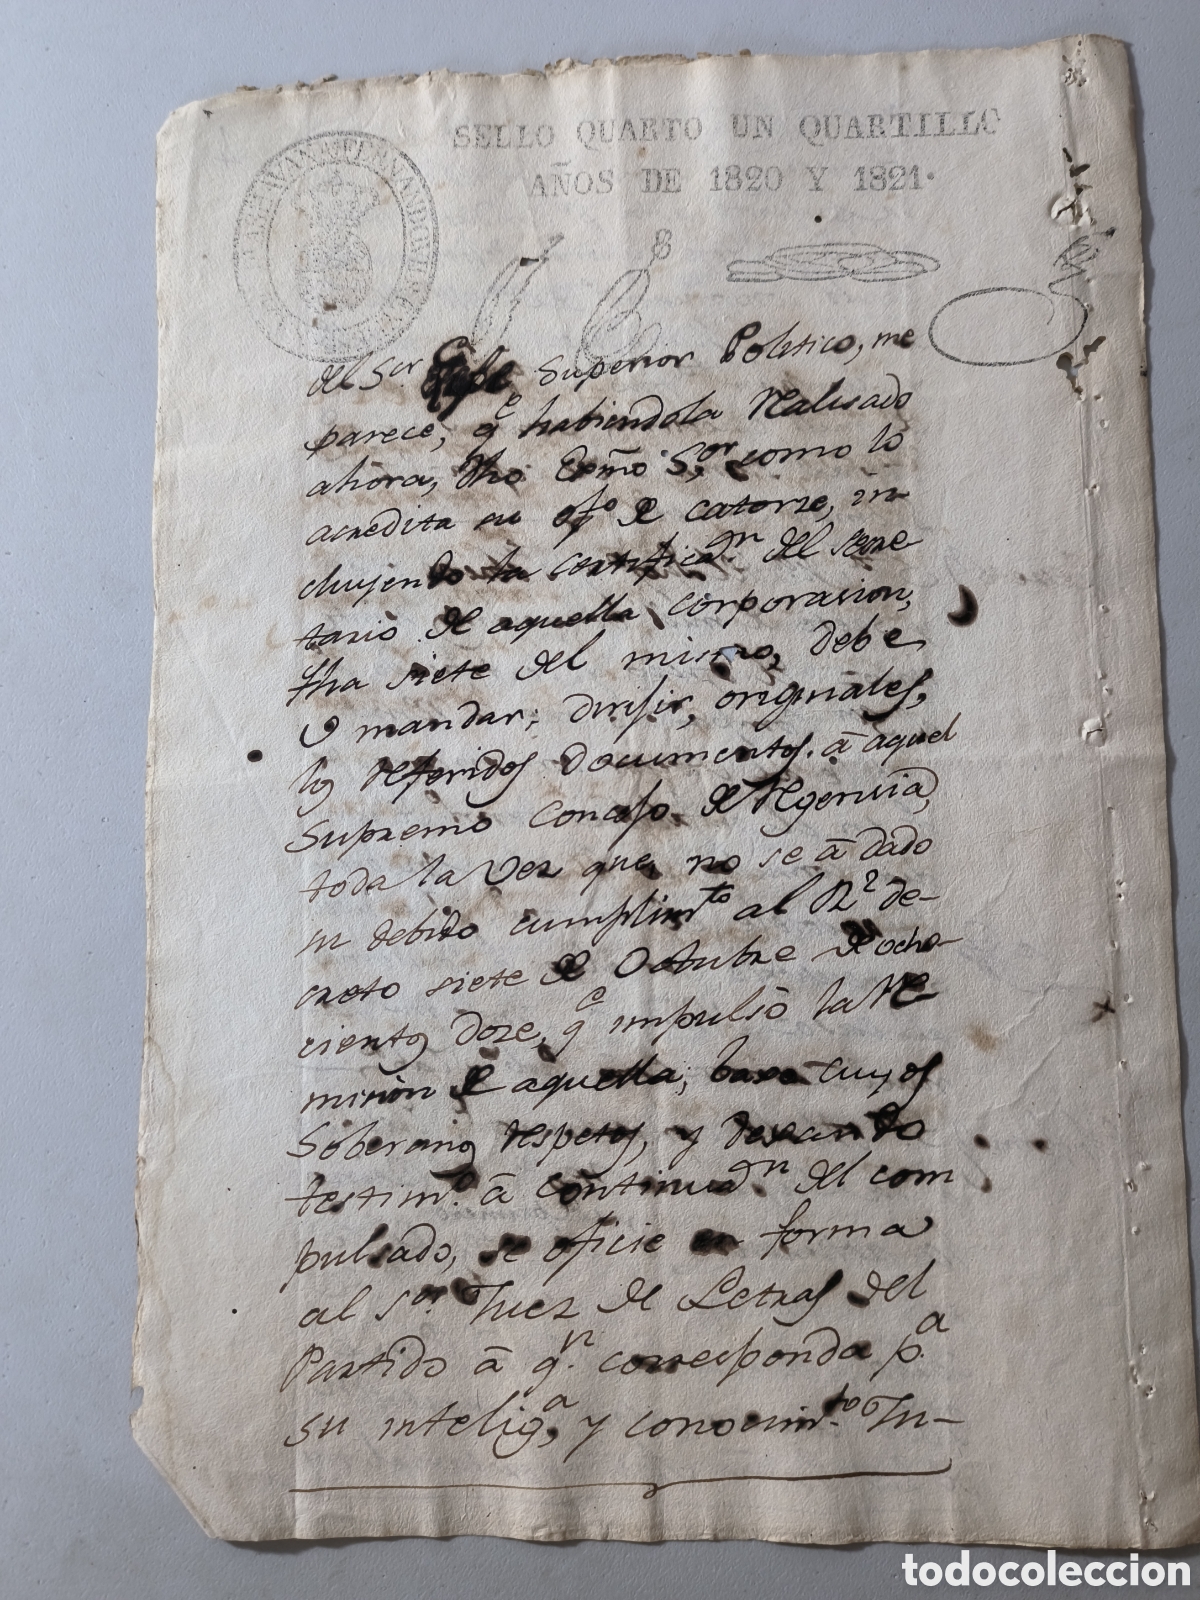 SELLO QUARTO UN QUARTILLO
AÑOS DE 1820 Y 1821.
8
del Sor Gefe Superior Politico, me
parece, qe habiendola realisado
ahora, dho Exmo Sor, como lo
acredita su ofo de catorze, in-
cluyendo la certificaon del secre-
tario de aquella corporasion,
fha siete del mismo, debe
V mandar, dirijir, originales,
los referidos documentos. á aquel
Supremo Concejo de Regencia,
toda la vez que, no se á dado
su debido cumplimto al Rl de-
creto siete de Octubre de ocho-
cientos doze, qe impulsó la re
mision de aquella; baxo cuyos
Soberanos respetos, y dexando
testimo á continuaon del com
pulsado, se oficie en forma
al Sor Juez de Letras del
Partido á qn corresponda pa
su inteliga, y conocimto In-
todocoleccion